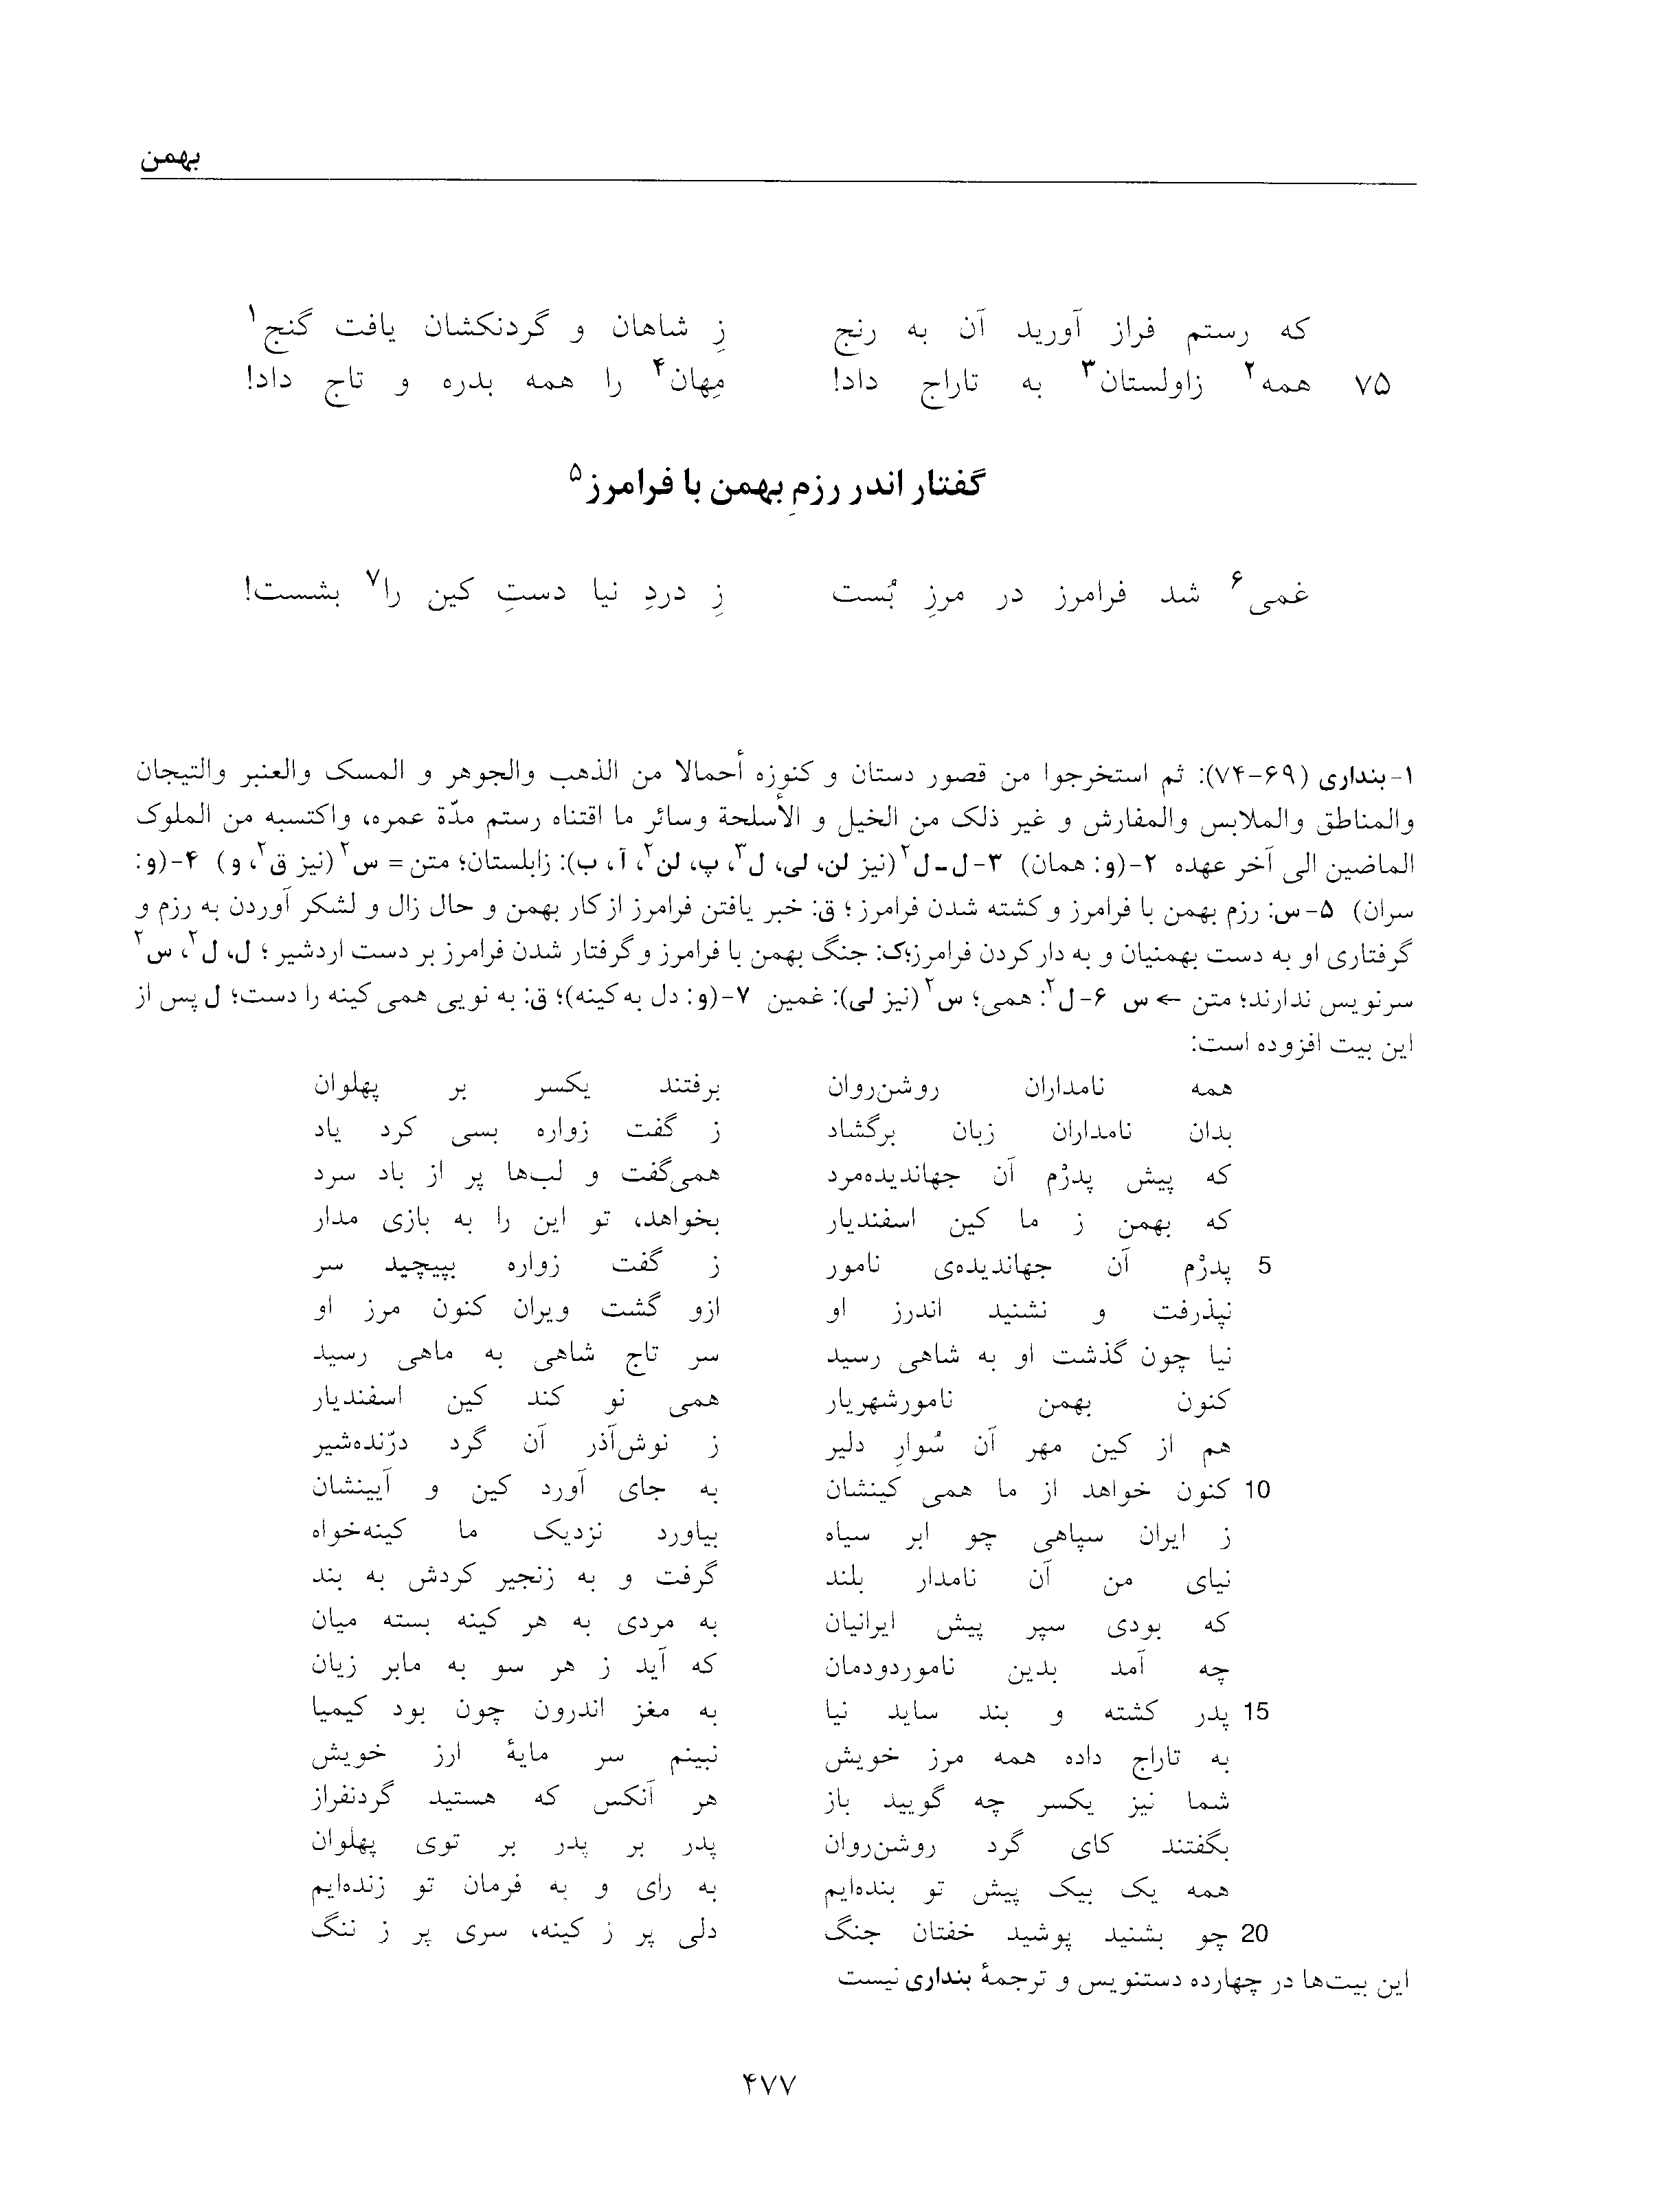 بهمن
که رستم فراز آورید آن به رنج زِ شاهان و گردنکشان یافت گنج۱
۷۵ همه۲ زاولستان۳ به تاراج داد! مِهان۴ را همه بدره و تاج داد!
گفتار اندر رزمِ بهمن با فرامرز۵
غمی۶ شد فرامرز در مرزِ بُست زِ دردِ نیا دستِ کین را۷ بشست!
۱-بنداری (۶۹-۷۴): ثم استخرجوا من قصور دستان و کنوزه أحمالا من الذهب والجوهر و المسک والعنبر والتیجان
والمناطق والملابس والمفارش و غیر ذلک من الخیل و الأسلحة وسائر ما اقتناه رستم مدّة عمره، واکتسبه من الملوک
الماضین الی آخر عهده ۲-(و: همان) ۳-ل-ل۲ (نیز لن، لی، ل۳، پ، لن۲، آ، ب): زابلستان؛ متن = س۲ (نیز ق۲، و) ۴-(و:
سران) ۵-س: رزم بهمن با فرامرز و کشته شدن فرامرز؛ ق: خبر یافتن فرامرز از کار بهمن و حال زال و لشکر آوردن به رزم و
گرفتاری او به دست بهمنیان و به دار کردن فرامرز؛ک: جنگ بهمن با فرامرز و گرفتار شدن فرامرز بر دست اردشیر؛ ل، ل۲، س۲
سرنویس ندارند؛ متن ← س ۶-ل۲: همی؛ س۲ (نیز لی): غمین ۷-(و: دل به کینه)؛ ق: به نویی همی کینه را دست؛ ل پس از
این بیت افزوده است:
همه نامداران روشن‌روان برفتند یکسر بر پهلوان
بدان نامداران زبان برگشاد ز گفت زواره بسی کرد یاد
که پیش پدرْم آن جهاندیده‌مرد همی‌گفت و لب‌ها پر از باد سرد
که بهمن ز ما کین اسفندیار بخواهد، تو این را به بازی مدار
5 پدرْم آن جهاندیده‌ی نامور ز گفت زواره بپیچید سر
نپذرفت و نشنید اندرز او ازو گشت ویران کنون مرز او
نیا چون گذشت او به شاهی رسید سر تاج شاهی به ماهی رسید
کنون بهمن نامورشهریار همی نو کند کین اسفندیار
هم از کین مهر آن سُوارِ دلیر ز نوش‌آذر آن گرد درّنده‌شیر
10 کنون خواهد از ما همی کینشان به جای آورد کین و آیینشان
ز ایران سپاهی چو ابر سیاه بیاورد نزدیک ما کینه‌خواه
نیای من آن نامدار بلند گرفت و به زنجیر کردش به بند
که بودی سپر پیش ایرانیان به مردی به هر کینه بسته میان
چه آمد بدین ناموردودمان که آید ز هر سو به مابر زیان
15 پدر کشته و بند ساید نیا به مغز اندرون چون بود کیمیا
به تاراج داده همه مرز خویش نبینم سر مایهٔ ارز خویش
شما نیز یکسر چه گویید باز هر آنکس که هستید گردنفراز
بگفتند کای گرد روشن‌روان پدر بر پدر بر توی پهلوان
همه یک بیک پیش تو بنده‌ایم به رای و به فرمان تو زنده‌ایم
20 چو بشنید پوشید خفتان جنگ دلی پر ز کینه، سری پر ز ننگ
این بیت‌ها در چهارده دستنویس و ترجمهٔ بنداری نیست
۴۷۷